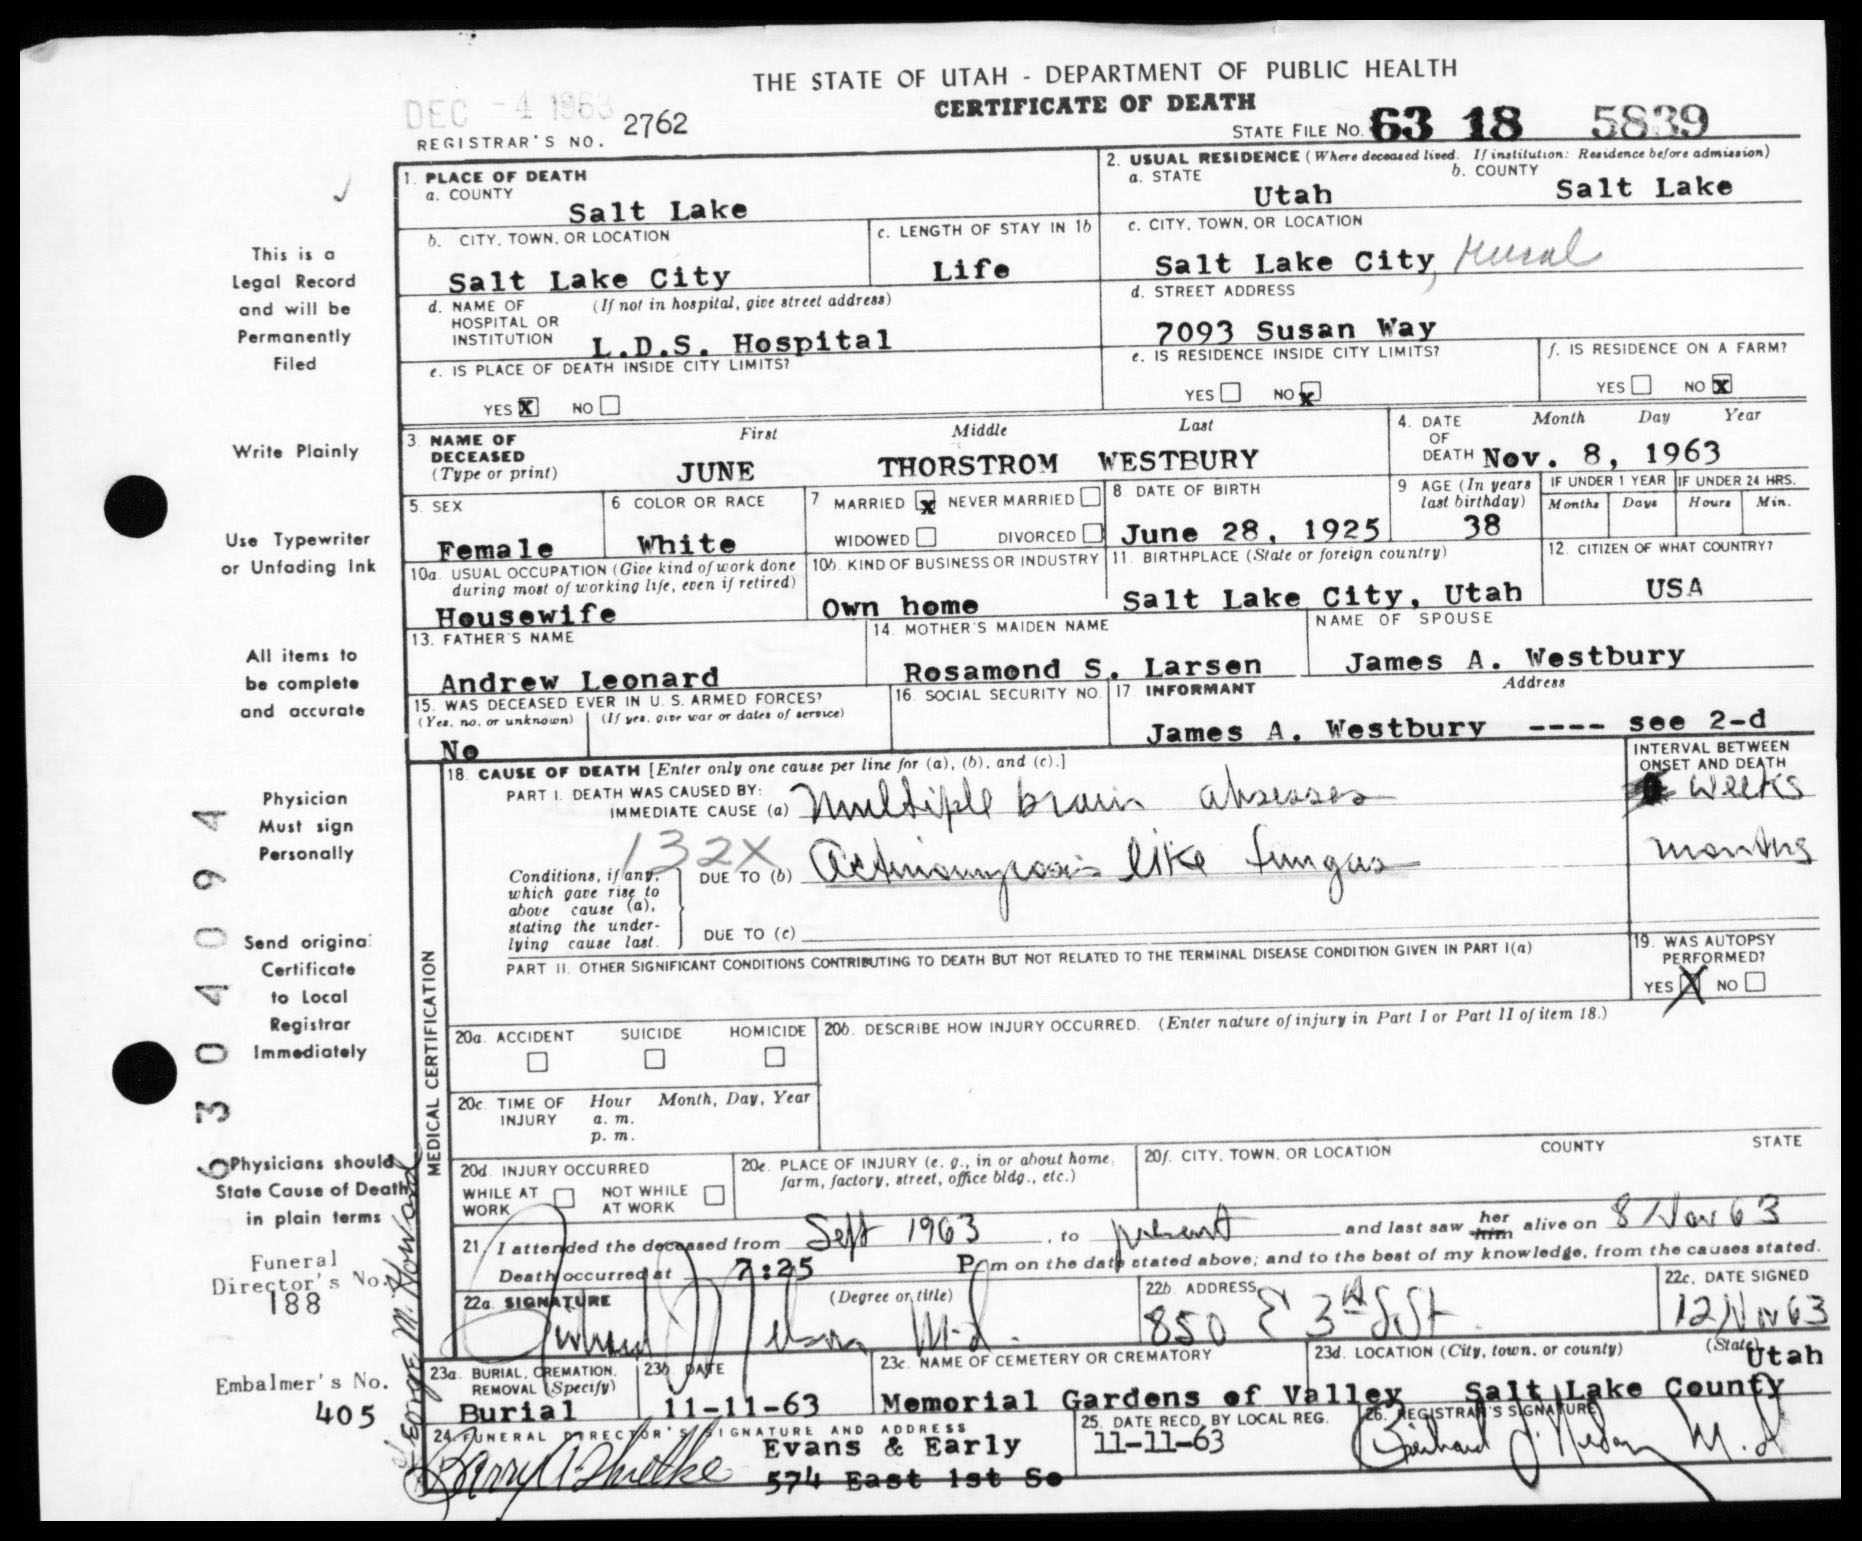 THE STATE OF UTAH - DEPARTMENT OF PUBLIC HEALTH
CERTIFICATE OF DEATH
DEC -4 1963
REGISTRAR'S NO. 2762
STATE FILE NO. 63 18 5839
1. PLACE OF DEATH
a. COUNTY
Salt Lake
2. USUAL RESIDENCE (Where deceased lived. If institution: Residence before admission)
a. STATE Utah
b. COUNTY Salt Lake
b. CITY, TOWN, OR LOCATION
Salt Lake City
c. LENGTH OF STAY IN 1b
Life
c. CITY, TOWN, OR LOCATION
Salt Lake City, Rural
d. NAME OF HOSPITAL OR INSTITUTION (If not in hospital, give street address)
L.D.S. Hospital
d. STREET ADDRESS
7093 Susan Way
e. IS PLACE OF DEATH INSIDE CITY LIMITS?
YES X NO
e. IS RESIDENCE INSIDE CITY LIMITS?
YES NO X
f. IS RESIDENCE ON A FARM?
YES NO X
3 NAME OF DECEASED (Type or print)
First Middle Last
JUNE THORSTROM WESTBURY
4. DATE OF DEATH
Month Day Year
Nov. 8, 1963
5. SEX
Female
6 COLOR OR RACE
White
7 MARRIED X NEVER MARRIED
WIDOWED DIVORCED
8 DATE OF BIRTH
June 28, 1925
9 AGE (In years last birthday)
38
IF UNDER 1 YEAR
Months Days
IF UNDER 24 HRS.
Hours Min.
10a. USUAL OCCUPATION (Give kind of work done during most of working life, even if retired)
Housewife
10b. KIND OF BUSINESS OR INDUSTRY
Own home
11. BIRTHPLACE (State or foreign country)
Salt Lake City, Utah
12. CITIZEN OF WHAT COUNTRY?
USA
13. FATHER'S NAME
Andrew Leonard
14. MOTHER'S MAIDEN NAME
Rosamond S. Larsen
NAME OF SPOUSE
James A. Westbury
15. WAS DECEASED EVER IN U.S. ARMED FORCES?
(Yes, no, or unknown) (If yes, give war or dates of service)
No
16. SOCIAL SECURITY NO.
17. INFORMANT Address
James A. Westbury ---- see 2-d
MEDICAL CERTIFICATION
18. CAUSE OF DEATH [Enter only one cause per line for (a), (b), and (c).]
INTERVAL BETWEEN ONSET AND DEATH
PART I. DEATH WAS CAUSED BY:
IMMEDIATE CAUSE (a) Multiple brain abscesses
weeks
132X
Conditions, if any, which gave rise to above cause (a), stating the underlying cause last.
DUE TO (b) Actinomycosis like fungus
months
DUE TO (c)
PART II. OTHER SIGNIFICANT CONDITIONS CONTRIBUTING TO DEATH BUT NOT RELATED TO THE TERMINAL DISEASE CONDITION GIVEN IN PART I(a)
19. WAS AUTOPSY PERFORMED?
YES X NO
20a. ACCIDENT SUICIDE HOMICIDE
20b. DESCRIBE HOW INJURY OCCURRED. (Enter nature of injury in Part I or Part II of item 18.)
20c. TIME OF INJURY Hour Month, Day, Year
a. m.
p. m.
20d. INJURY OCCURRED
WHILE AT WORK NOT WHILE AT WORK
20e. PLACE OF INJURY (e. g., in or about home, farm, factory, street, office bldg., etc.)
20f. CITY, TOWN, OR LOCATION COUNTY STATE
21. I attended the deceased from Sept 1963, to present and last saw her him alive on 8 Nov 63
Death occurred at 7:25 P m on the date stated above; and to the best of my knowledge, from the causes stated.
22a. SIGNATURE (Degree or title)
M.D.
22b. ADDRESS
850 E 3rd So St.
22c. DATE SIGNED
12 Nov 63
23a. BURIAL, CREMATION, REMOVAL (Specify)
Burial
23b. DATE
11-11-63
23c. NAME OF CEMETERY OR CREMATORY
Memorial Gardens of Valley
23d. LOCATION (City, town, or county) (State)
Salt Lake County Utah
24. FUNERAL DIRECTOR'S SIGNATURE AND ADDRESS
Evans & Early
574 East 1st So
25. DATE RECD. BY LOCAL REG.
11-11-63
26. REGISTRAR'S SIGNATURE
M.D.
This is a
Legal Record
and will be
Permanently
Filed
Write Plainly
Use Typewriter
or Unfading Ink
All items to
be complete
and accurate
Physician
Must sign
Personally
Send original
Certificate
to Local
Registrar
Immediately
Physicians should
State Cause of Death
in plain terms
Funeral
Director's No.
188
Embalmer's No.
405
George M. Howard
6304094